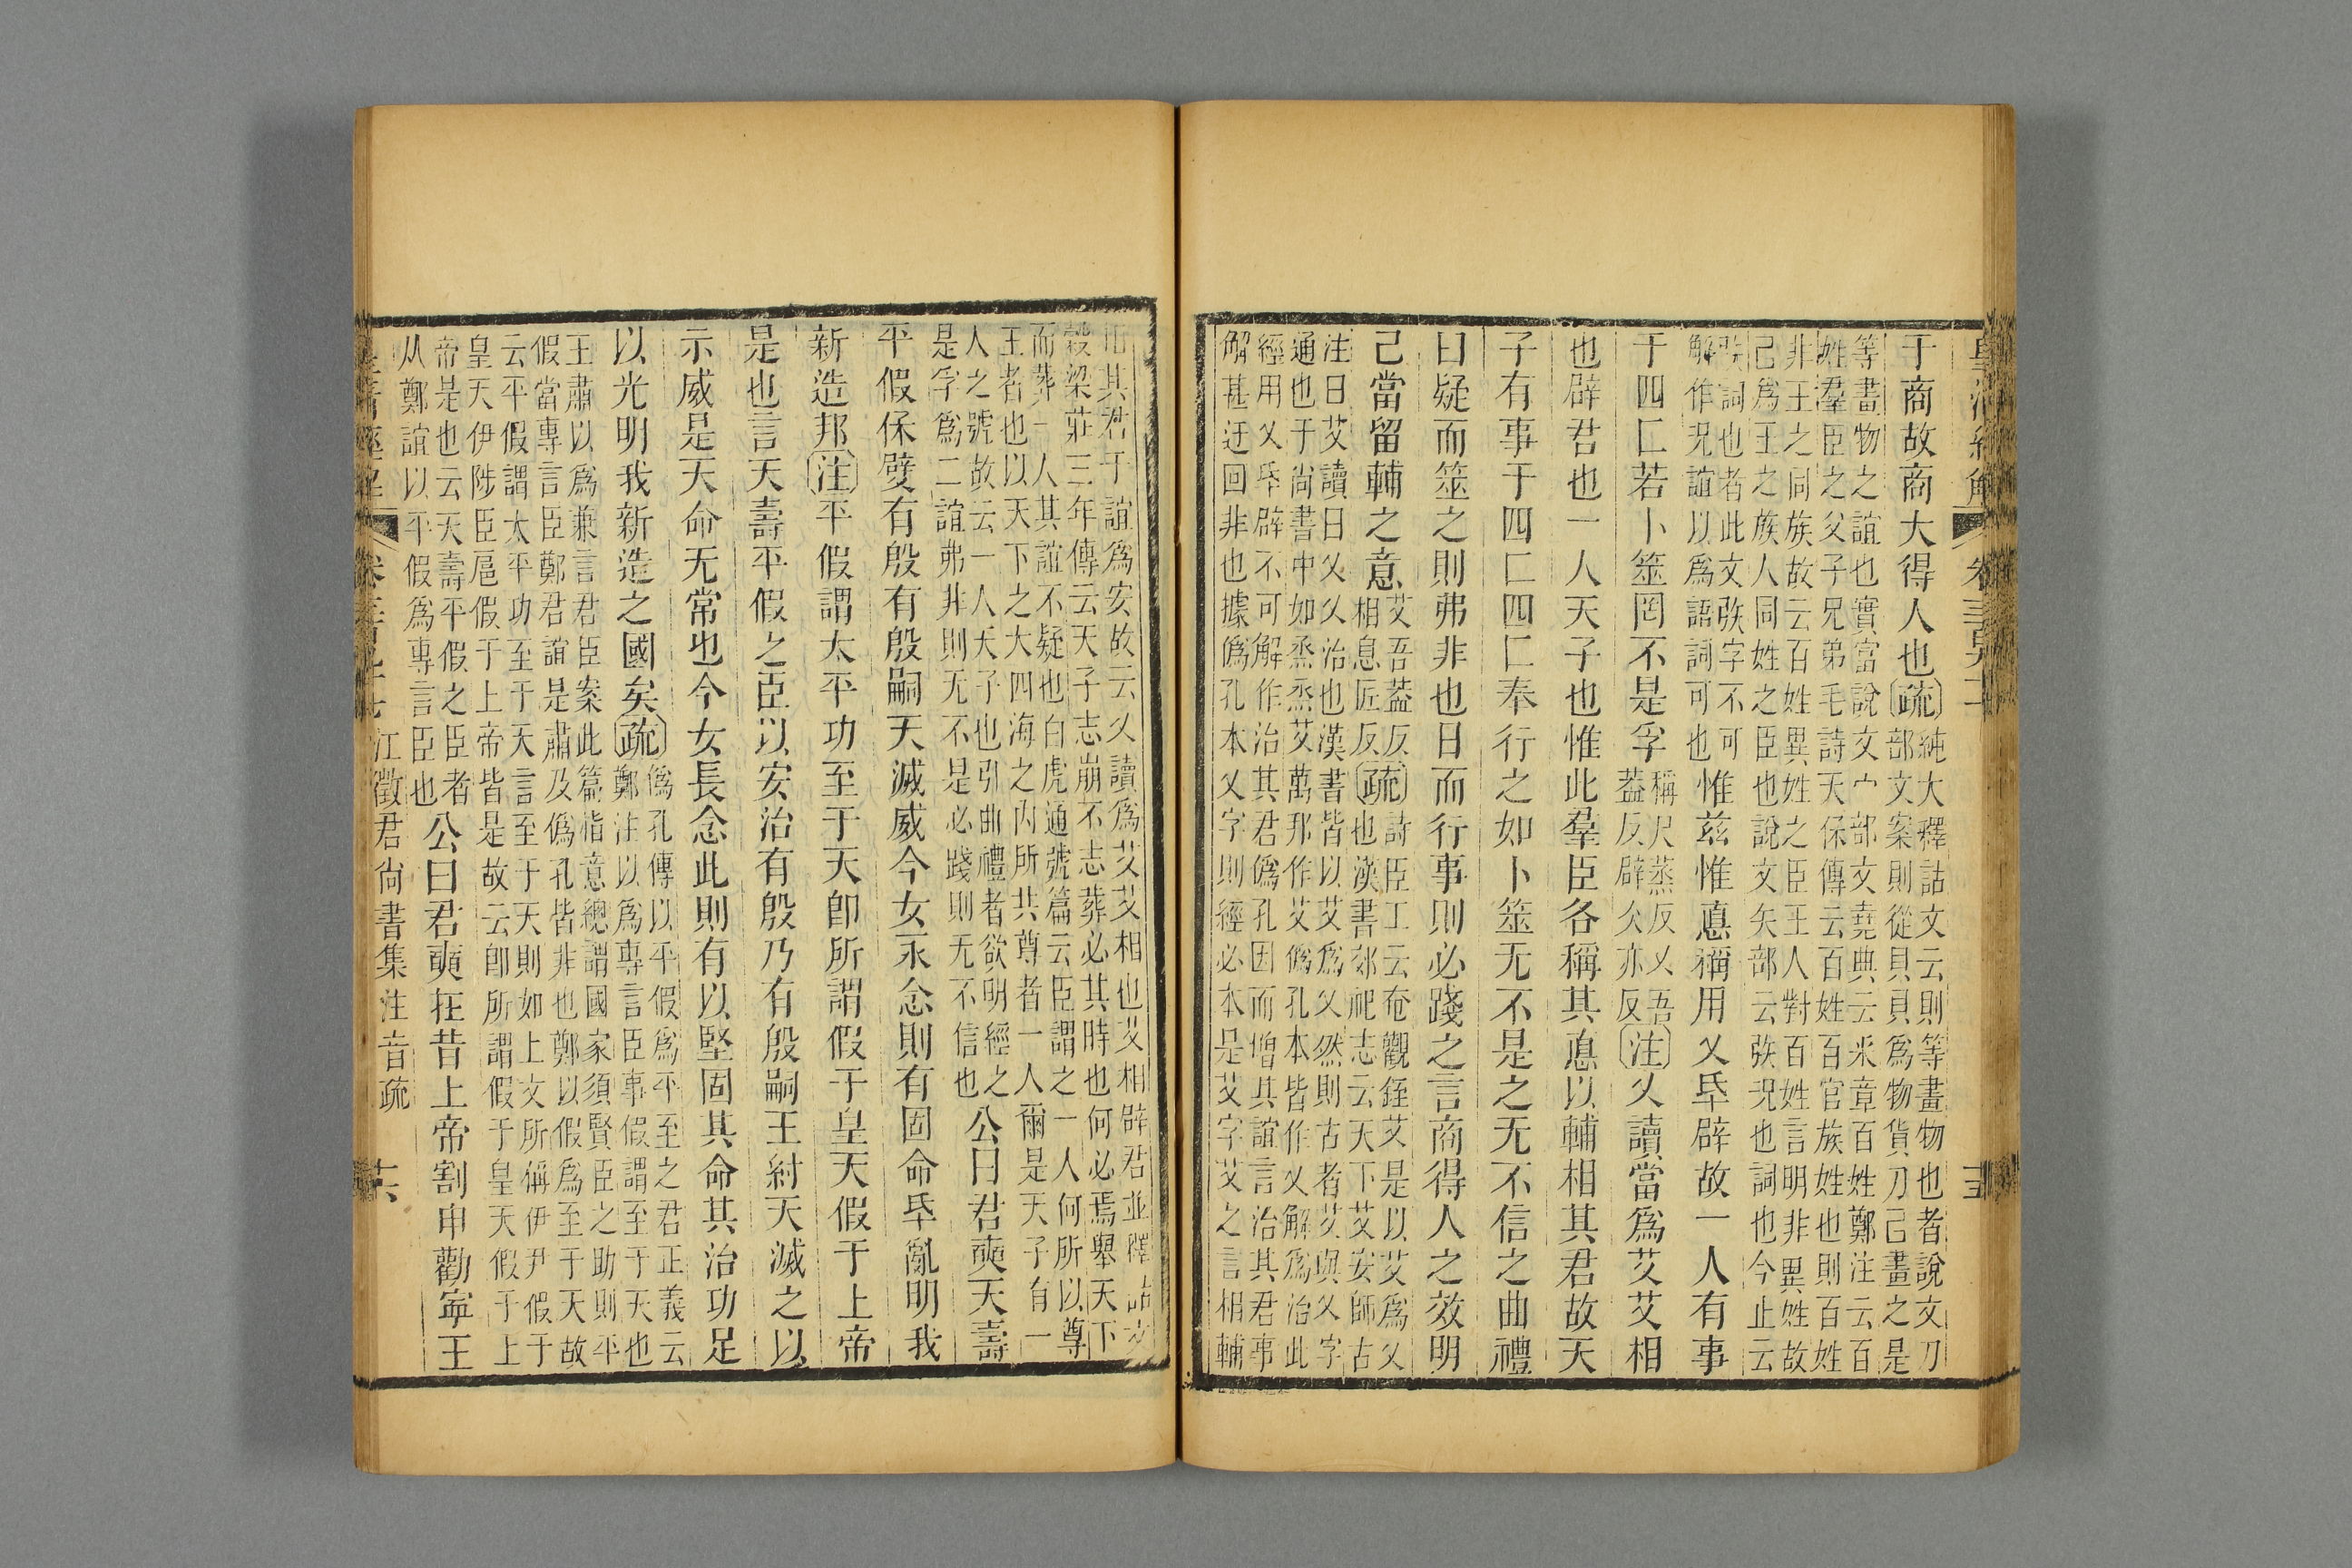 皇清經解 卷三百九十 十五
于商故商大得人也疏純大釋詁文云則等畫物也者說文刀
部文案則從貝貝爲物貨刀己畫之是
等畫物之誼也實富說文宀部文堯典云釆章百姓鄭注云百
姓羣臣之父子兄弟毛詩天保傳云百姓百官族姓也則百姓
非王之同族故云百姓異姓之臣王人對百姓言明非異姓故
己爲王之族人同姓之臣也說文矢部云矤況也詞也今止云
矤詞也者此文矤字不可
解作況誼以爲語詞可也惟茲惟悳稱用乂氒辟故一人有事
于四匚若卜筮罔不是孚稱尺蒸反乂吾
蓋反辟亦反注乂讀當爲艾艾相
也辟君也一人天子也惟此羣臣各稱其悳以輔相其君故天
子有事于四匚四匚奉行之如卜筮无不是之无不信之曲禮
曰疑而筮之則弗非也日而行事則必踐之言商得人之效明
己當留輔之意艾吾蓋反
相息匠反疏詩臣工云奄觀銍艾是以艾爲乂
也漢書郊祀志云天下艾安師古
注曰艾讀曰乂乂治也漢書皆以艾爲乂然則古者艾與乂字
通也于尚書中如烝烝艾萬邦作艾僞孔本皆作乂解爲治此
經用乂氒辟不可解作治其君僞孔因而增其誼言治其君事
解甚迂回非也據僞孔本乂字則經必本是艾字艾之言相輔
相其君于誼爲安故云乂讀爲艾艾相也艾相辟君並釋詁文
穀梁莊三年傳云天子志崩不志葬必其時也何必焉舉天下
而葬一人其誼不疑也白虎通號篇云臣謂之一人何所以尊
王者也以天下之大四海之內所共尊者一人爾是天子有一
人之號故云一人天子也引曲禮者欲明經之
是孚爲二誼弗非則无不是必踐則无不信也公曰君奭天壽
平假保嬖有殷有殷嗣天滅威今女永念則有固命氒亂明我
新造邦注平假謂太平功至于天卽所謂假于皇天假于上帝
是也言天壽平假之臣以安治有殷乃有殷嗣王紂天滅之以
示威是天命无常也今女長念此則有以堅固其命其治功足
以光明我新造之國矣疏僞孔傳以平假爲平至之君正義云
鄭注以爲專言臣事假謂至于天也
王肅以爲兼言君臣案此篇恉意總謂國家須賢臣之助則平
假當專言臣鄭君誼是肅及僞孔皆非也鄭以假爲至于天故
云平假謂太平功至于天言至于天則如上文所稱伊尹假于
皇天伊陟臣扈假于上帝皆是故云卽所謂假于皇天假于上
帝是也云天壽平假之臣者
从鄭誼以平假爲專言臣也公曰君奭在昔上帝割申勸寍王
皇清經解 卷三百九十七 江徵君尚書集注音疏 十六